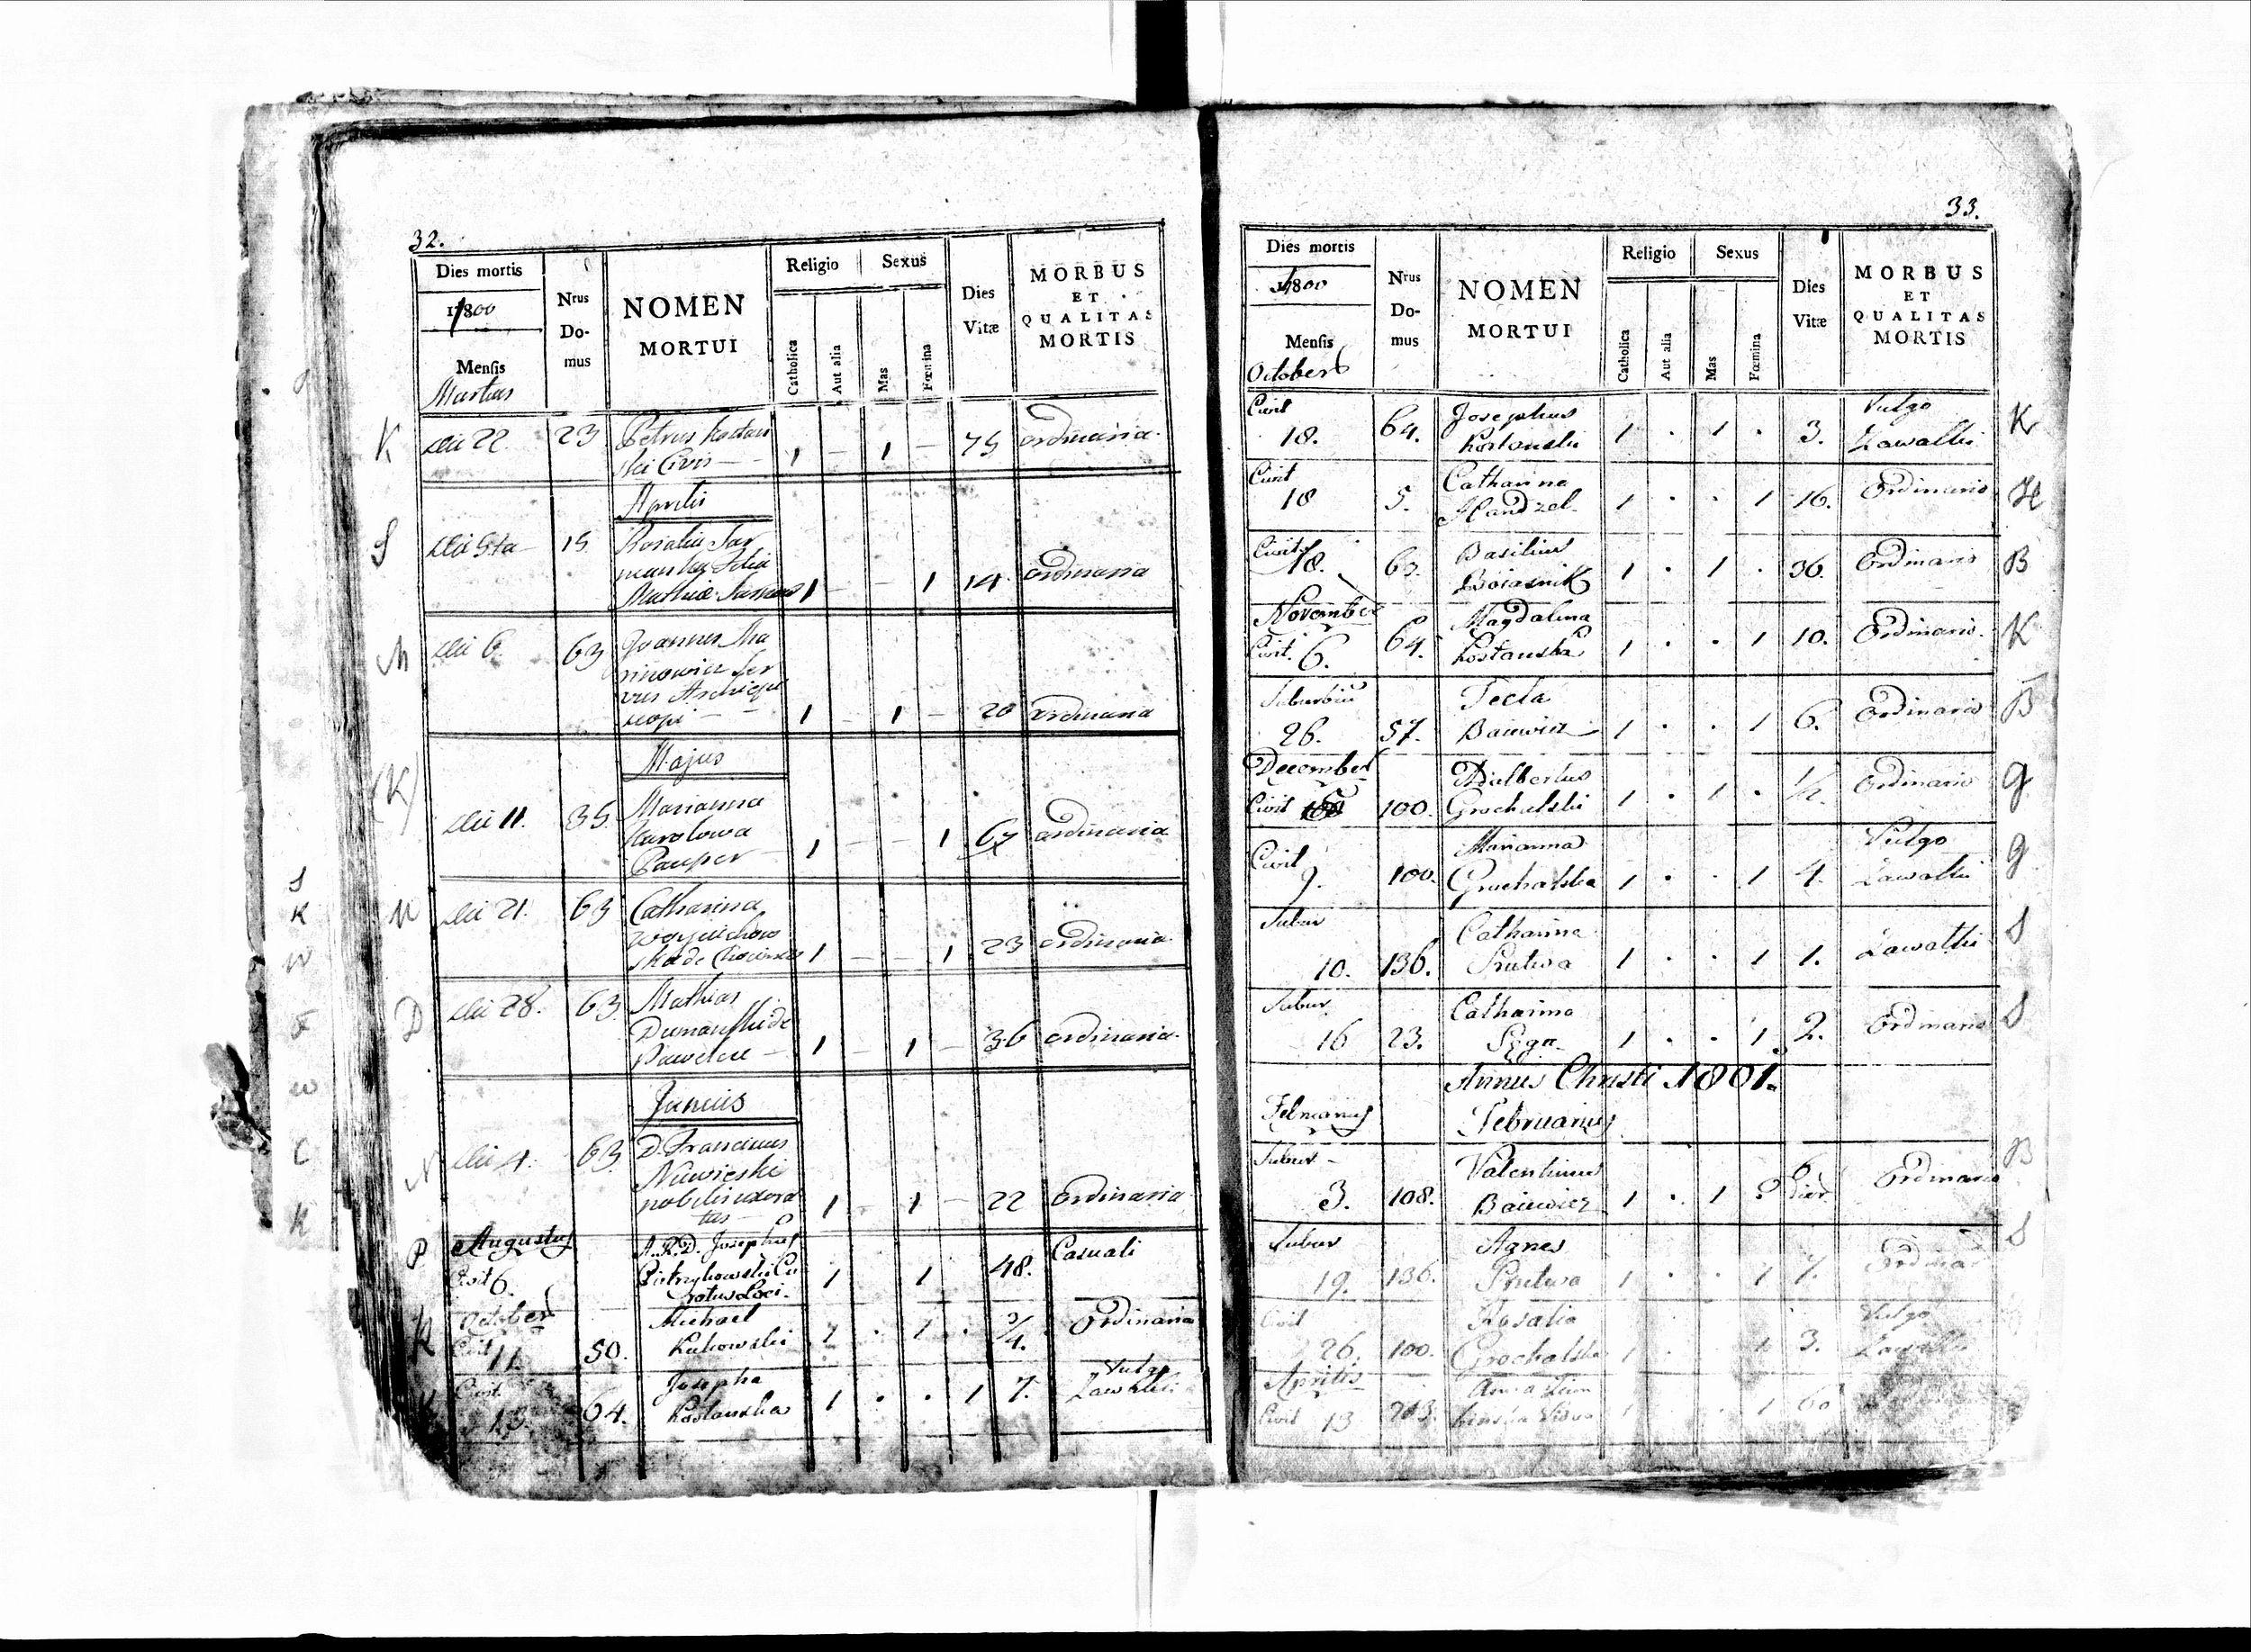 32.
Dies mortis
1800
Mensis
Martius
Nrus
Do-
mus
NOMEN
MORTUI
Religio
Sexus
Catholica
Aut alia
Mas
Fœmina
Dies
Vitæ
MORBUS
ET
QUALITAS
MORTIS
K
die 22.
23
Petrus
ski Civis
1 - 1 -
75
ordinaria.
Aprilis
S
die 5ta
15
Rosalia
Mathiæ
1 - - 1
14
ordinaria
M
die 6.
63
Joannes Ma
rinowicz Ser
vus Archiepi
scopi
1 - 1 -
20
ordinaria
Majus
(K)
die 11.
35.
Marianna
Karolowa
Pauper
1 - - 1
67
ordinaria
die 21.
63
Catharina
Woyciechow
ska de
1 - - 1
23
ordinaria
D
die 28.
63
Mathias
Dumanski de
1 - 1 -
36
ordinaria.
Junius
N
die 4.
63
D. Franciscus
Niewieski
nobilis uxora
tus
1 - 1 -
22
ordinaria
P
Augustus
Civit 6.
A.R.D. Josephus
Pietrzykowski Cu
ratus Loci.
1 1
48.
Casuali
K
October
Civit 11.
50.
Michael
Kukowski
1 . 1 .
3/4.
Ordinaria
Civit.
13.
64.
Josepha
Kostanska
1 . . 1
7.
Vulgo
Zawalki
33.
Dies mortis
1800
Mensis
October
Nrus
Do-
mus
NOMEN
MORTUI
Religio
Sexus
Catholica
Aut alia
Mas
Fœmina
Dies
Vitæ
MORBUS
ET
QUALITAS
MORTIS
Civit
18.
64.
Josephus
Kostanski
1 . 1 .
3.
Vulgo
Zawalki
K
Civit
18
5.
Catharina
Handzel.
1 . . 1
16.
Ordinario
H
Civit
18.
63.
Basilius
Boiarnik
1 . 1 .
36.
Ordinario
B
November
Civit. 6.
64.
Magdalena
Kostanska
1 . . 1
10.
Ordinario.
K
Suburbiu
26.
57.
Tecla
Baiewicz
1 . . 1
6.
Ordinario
B
December
Civit
100.
Adalbertus
Grochalski
1 . 1 .
1/2.
Ordinario
g
Civit
9.
100.
Marianna
Grochalska
1 . . 1
4.
Vulgo
Zawalki
g
Subur
10.
136.
Catharina
Srutwa
1 . . 1
1.
Zawalki
S
Subur
16
23.
Catharina
1 . . 1
2.
Ordinario
S
Annus Christi 1801.
Februarius
Februarius
Subur
3.
108.
Valentinus
Baiewicz
1 . 1
6
Ordinario
B
Subur
19.
136.
Agnes
Srutwa
1 . . 1
7.
S
Civit
26.
100.
Rosalia
Grochalska
1 . . 1
3.
Vulgo
Zawalki
Aprilis
Civit 13
1 . . 1
60